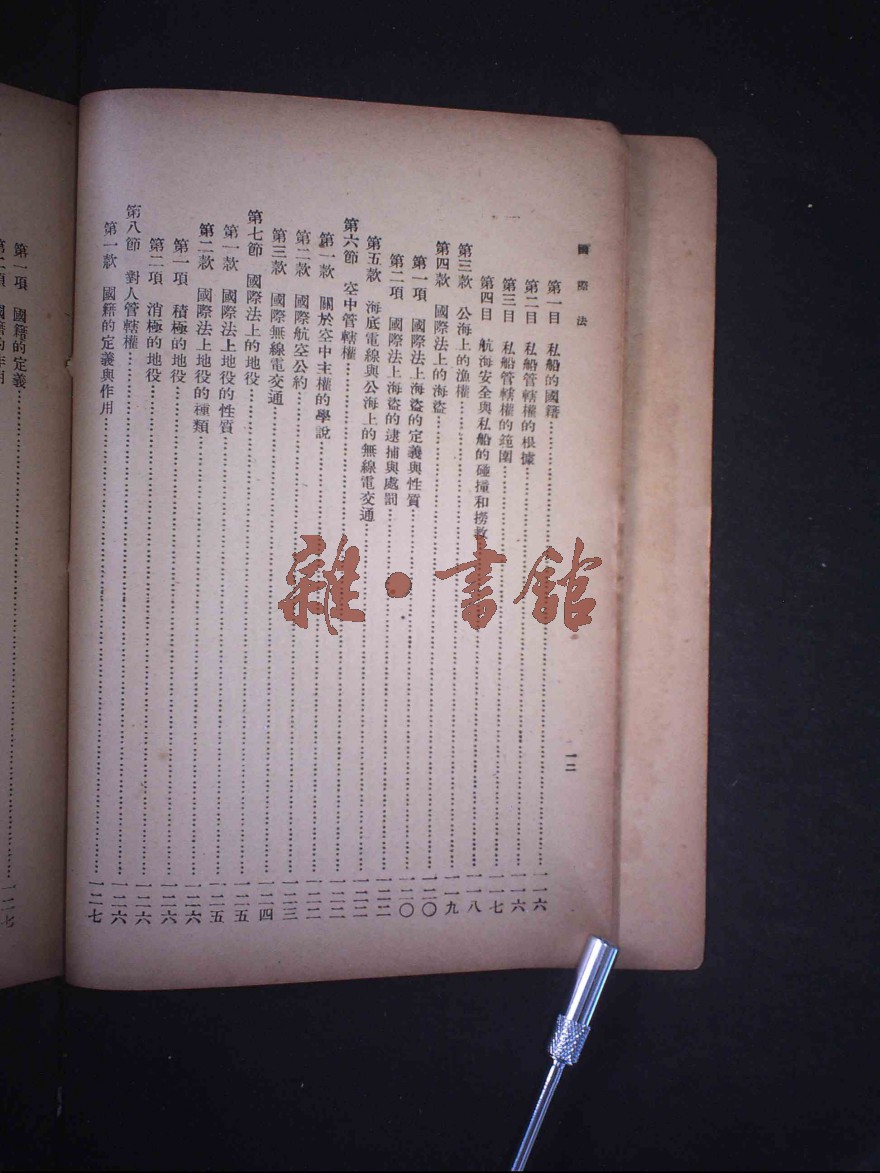 國際法
一二
第一目 私船的國籍……一一六
第二目 私船管轄權的根據……一一六
第三目 私船管轄權的範圍……一一七
第四目 航海安全與私船的碰撞和撈救……一一八
第三款 公海上的漁權……一一九
第四款 國際法上的海盜……一二〇
第一項 國際法上海盜的定義與性質……一二〇
第二項 國際法上海盜的逮捕與處罰……一二二
第五款 海底電線與公海上的無線電交通……一二二
第六節 空中管轄權……一二二
第一款 關於空中主權的學說……一二二
第二款 國際航空公約……一二三
第三款 國際無線電交通……一二四
第七節 國際法上的地役……一二五
第一款 國際法上地役的性質……一二五
第二款 國際法上地役的種類……一二六
第一項 積極的地役……一二六
第二項 消極的地役……一二六
第八節 對人管轄權……一二六
第一款 國籍的定義與作用……一二七
第一項 國籍的定義……一二七
第二項 國籍的作用
雜·書館